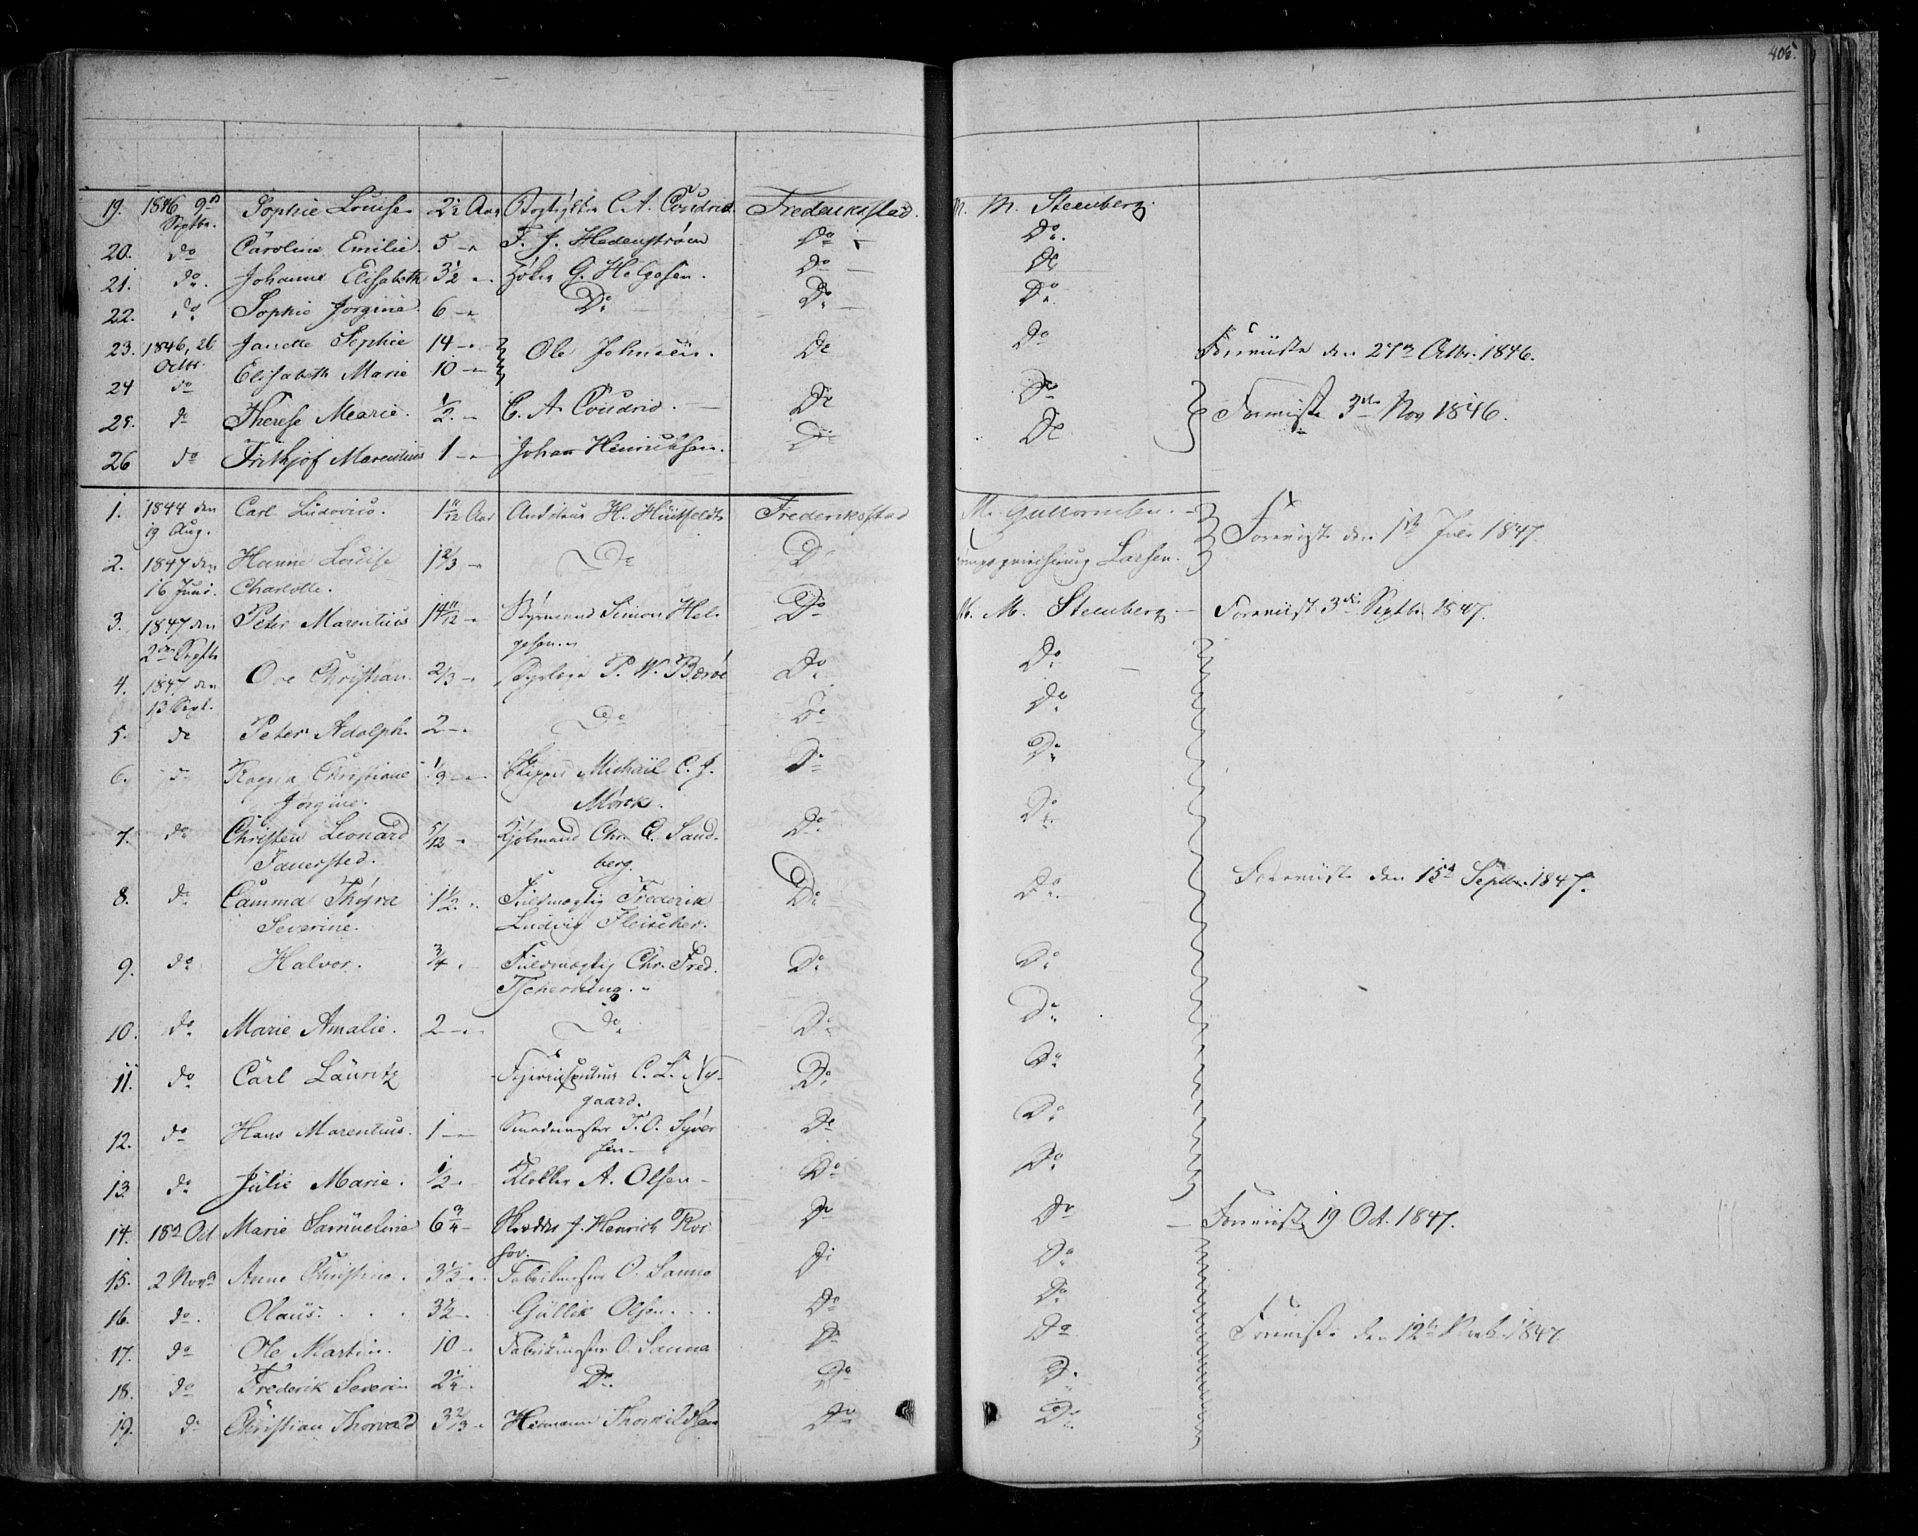 406.
19. 1846 9de Septbr. Sophie Louise 2½ Aar C. A. Coudrid. Frederiksstad. M. Steenberg.
20. do Caroline Emilie. 5 — T. J. Hedenstrøm Do — Do.
21. do. Johanne Elisabeth 3½ G. Helgesen. Do — Do
22. do Sophie Jørgine 6 — Do Do — Do.
23. 1846, 26 Octbr. Janette Sophie 14 — Ole Johnsen. Do Do Foreviiste den 27de Octbr. 1846.
24 do Elisabeth Marie 10 — Do
25. do Therese Marie. ½ — C. A. Coudrid. — Do Do Foreviiste 3die Nov 1846.
26 do Frithjof Marentius 1 — Johan Henriksen. Do
1. 1844 den 19 Aug. Carl Ludovico. 1 11/12 Aar H. Huitfeldt Frederiksstad M. Guttormsen. Foreviist den 1ste Juli 1847.
2. 1847 den 16 Juni. Hanne Louise 1 2/3 — Do Do Larsen.
Charlotte.
3. 1847 den 2den Septb Peter Marentius 14 11/12 — Simon Hel- Do M. Steenberg — Foreviist 3die Septbr. 1847.
gesen.
4. 1847 den 13 Sept. Ove Christian. 2/3 — P. W. Do Do
5. do Peter Adolph. 2 — Do Do do
6. do Ragna Christiane 1/3 — Skipper Michaël C. J. Do Do
Jørgine. Mørck.
7. do Christen Leonard 5/12 — Chr. C. Sand- Do. Do
Fauersted. berg.
8. do Camma Thyra 1½ Fuldmægtig Frederik Do Do. Foreviiste den 15de Septbr. 1847.
Severine. Ludvig Fleischer.
9. do Halvor. ¾ Fuldmægtig Chr. Fred. Do Do
Tscherning.
10. do Marie Amalie. 2 — Do Do Do
11. do Carl Lauritz C. L. Ny- Do Do
gaard.
12. do Hans Marentius. 1 — Smedemester T. O. Syver Do Do
sen —
13 do Julie Marie. ½ — Klokker A. Olsen — Do Do
14. 18de Oct Marie Samueline 6¾ — J. Henrich Do Do — Foreviiste 19 Oct. 1847.
15. 2 Novbr Anne Christine. 3½ — O. Sanne Do Do
16. do. Olaus. 3½ — Gullik Olsen. Do Do
17. do Ole Martin. 10 — O. Sanne Do Do Foreviiste den 12te 1847
18. do Frederik Severin 2¼ — Do Do Do
19. do Christian Thorvald 3 2/3 — Hermann Thorkildsen Do Do